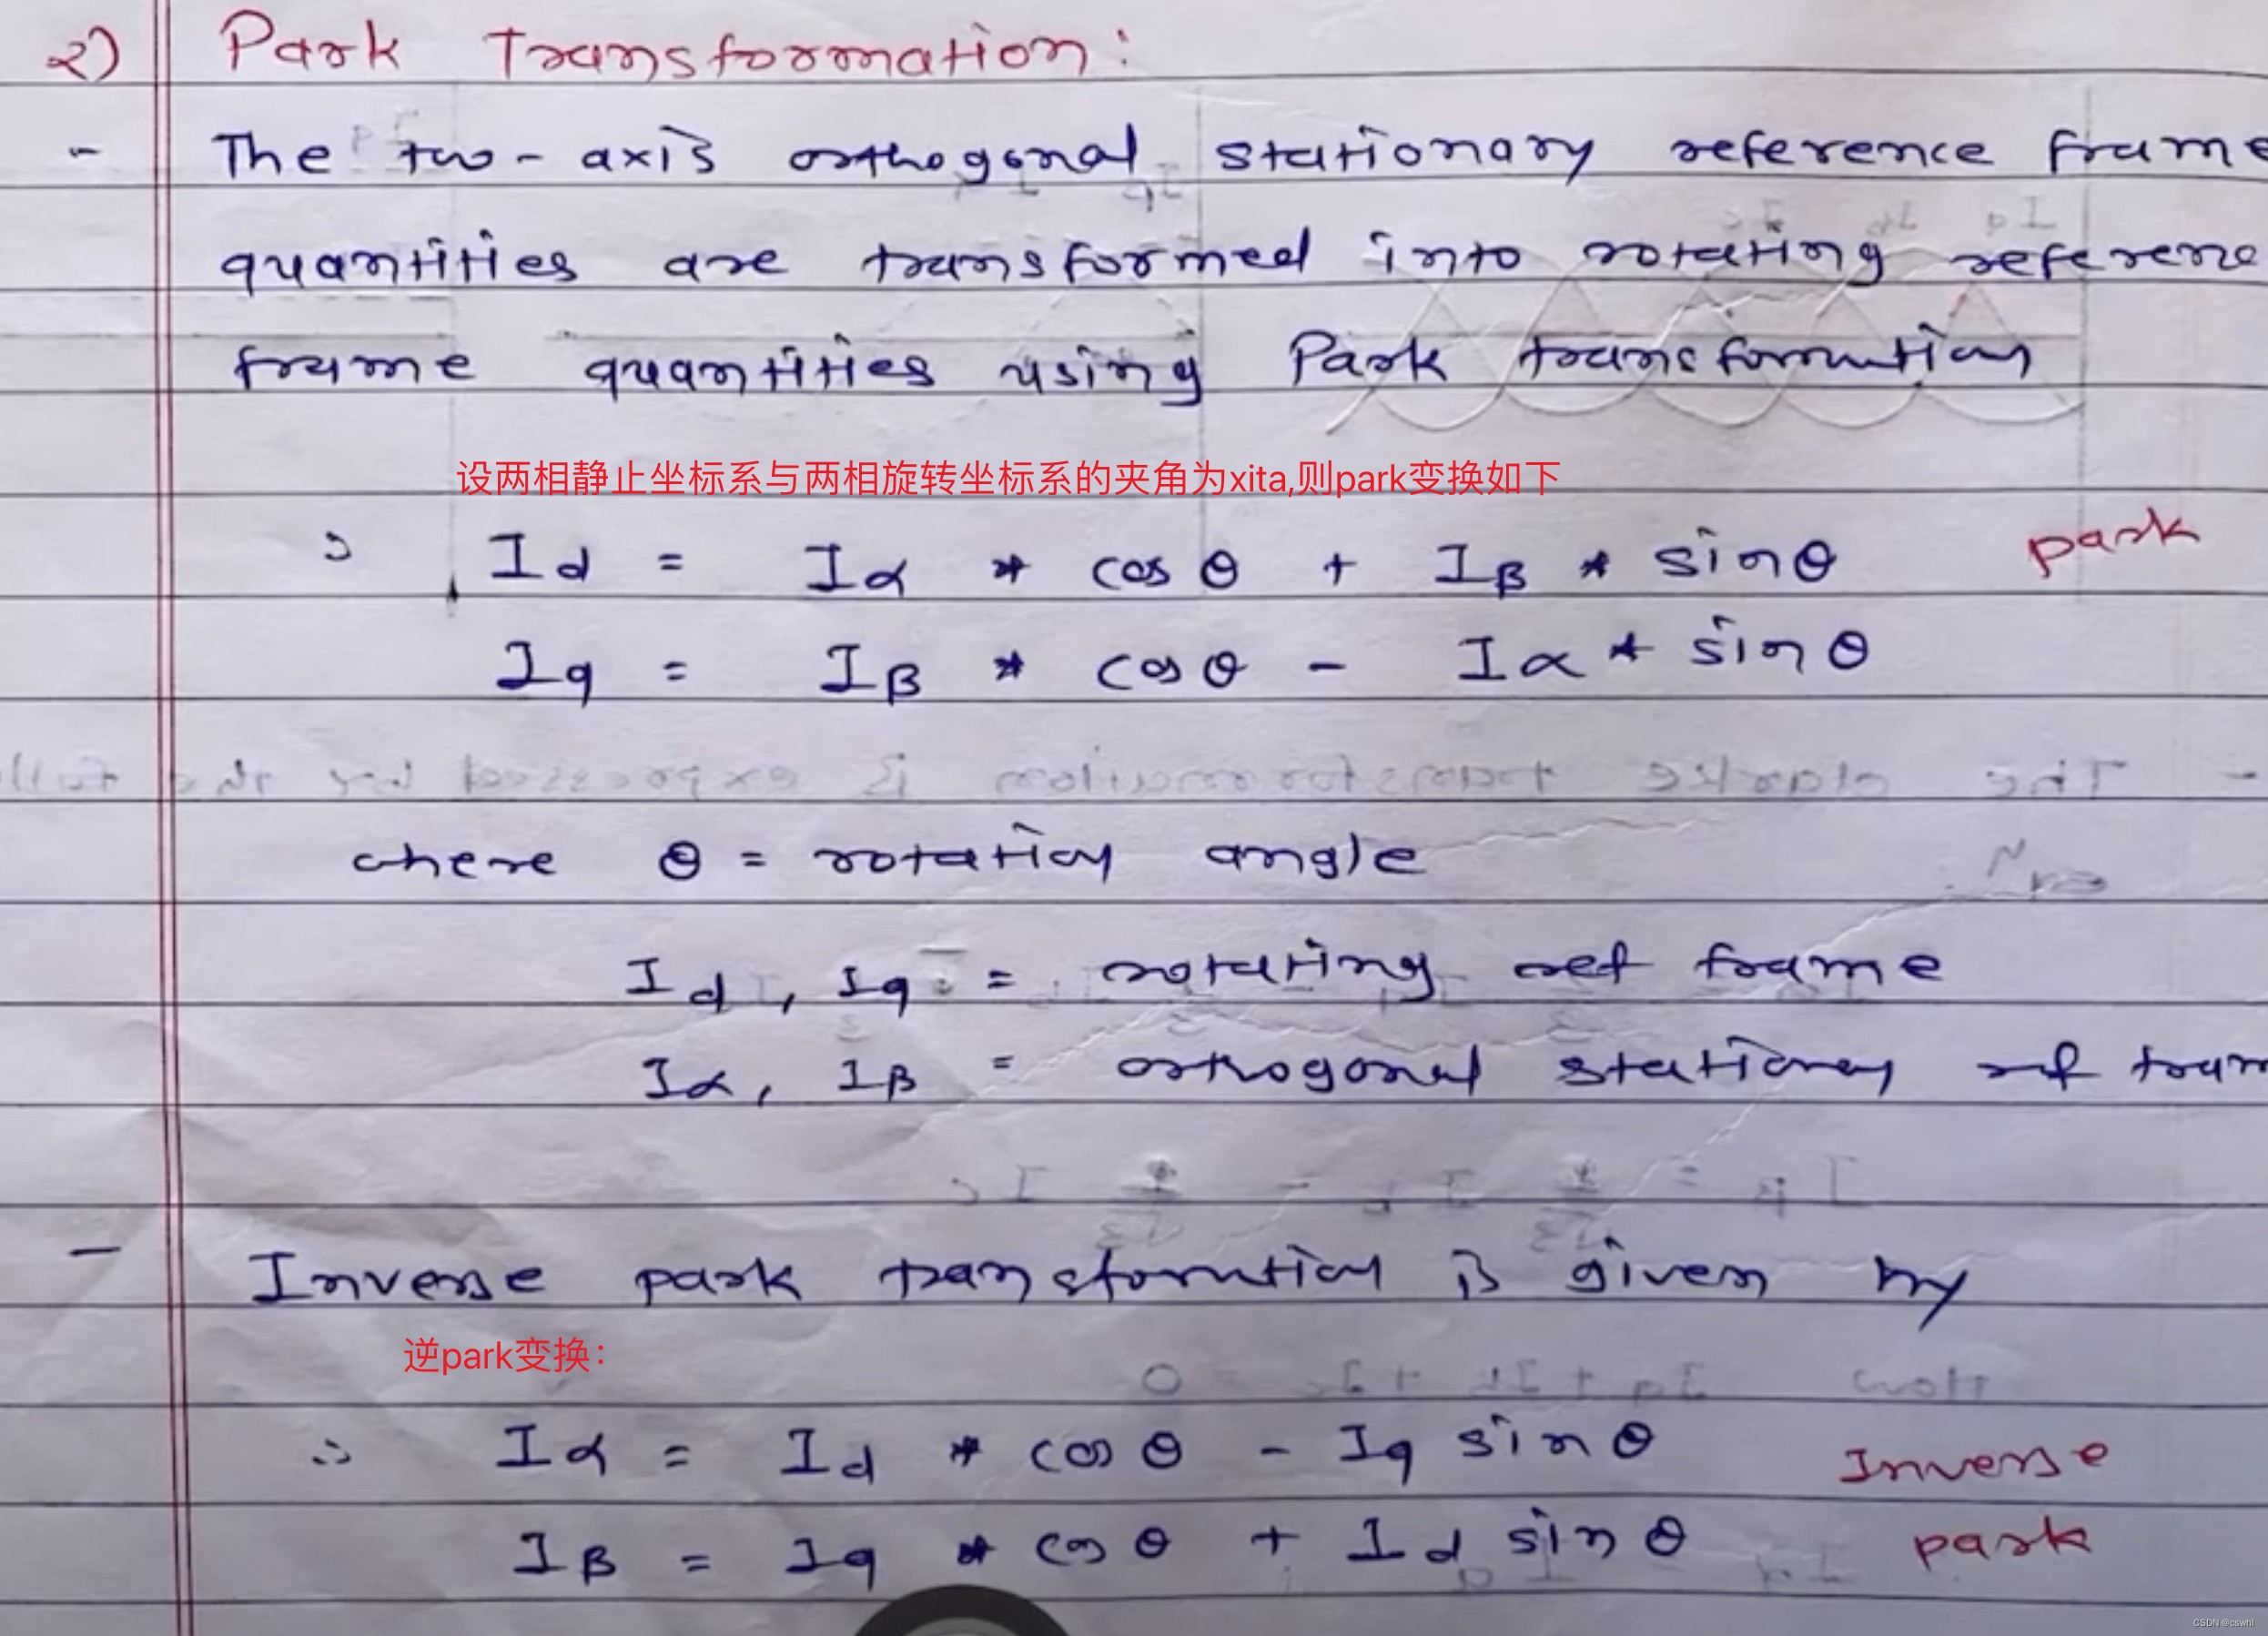 2) Park Transformation:
- The two-axis orthogonal stationary reference frame
quantities are transformed into rotating reference
frame quantities using Park transformation
设两相静止坐标系与两相旋转坐标系的夹角为xita,则park变换如下
∴ Id = Iα * cos θ + Iβ * sinθ park
Iq = Iβ * cosθ - Iα * sin θ
where θ = rotation angle
Id, Iq = rotating ref frame
Iα, Iβ = orthogonal stationary ref fram
- Inverse park transformation is given by
逆park变换：
∴ Iα = Id * cos θ - Iq sin θ Inverse
Iβ = Iq * cos θ + Id sin θ park
CSDN @cswhl